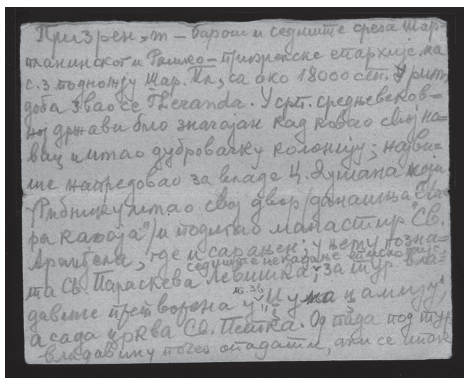 Призрен, м – варош и седиште среза Шар-
планинског и Рашко – призренске епархије, на
с. з. подножју Шар. Пл., са око 18000 ст. У рим.
доба звао се Theranda. У срп. средњевеков-
ној држави био значајан кад ковао свој но-
вац и имао дубровачку колонију; најви-
ше напредовао за владе Ц. Душана који
у Рибнику имао свој двор (данашња „Ца-
ра кава“) и подигао манастир Св.
Арханђела, где и сарањен; у њему позна-
седиште
та Св. Параскева Љевишка, за тур. вла-
давине претворена у Џума џамију,
а сада црква Св. Петка. Од тада под тур.
владавину почео опадати, али се ипак